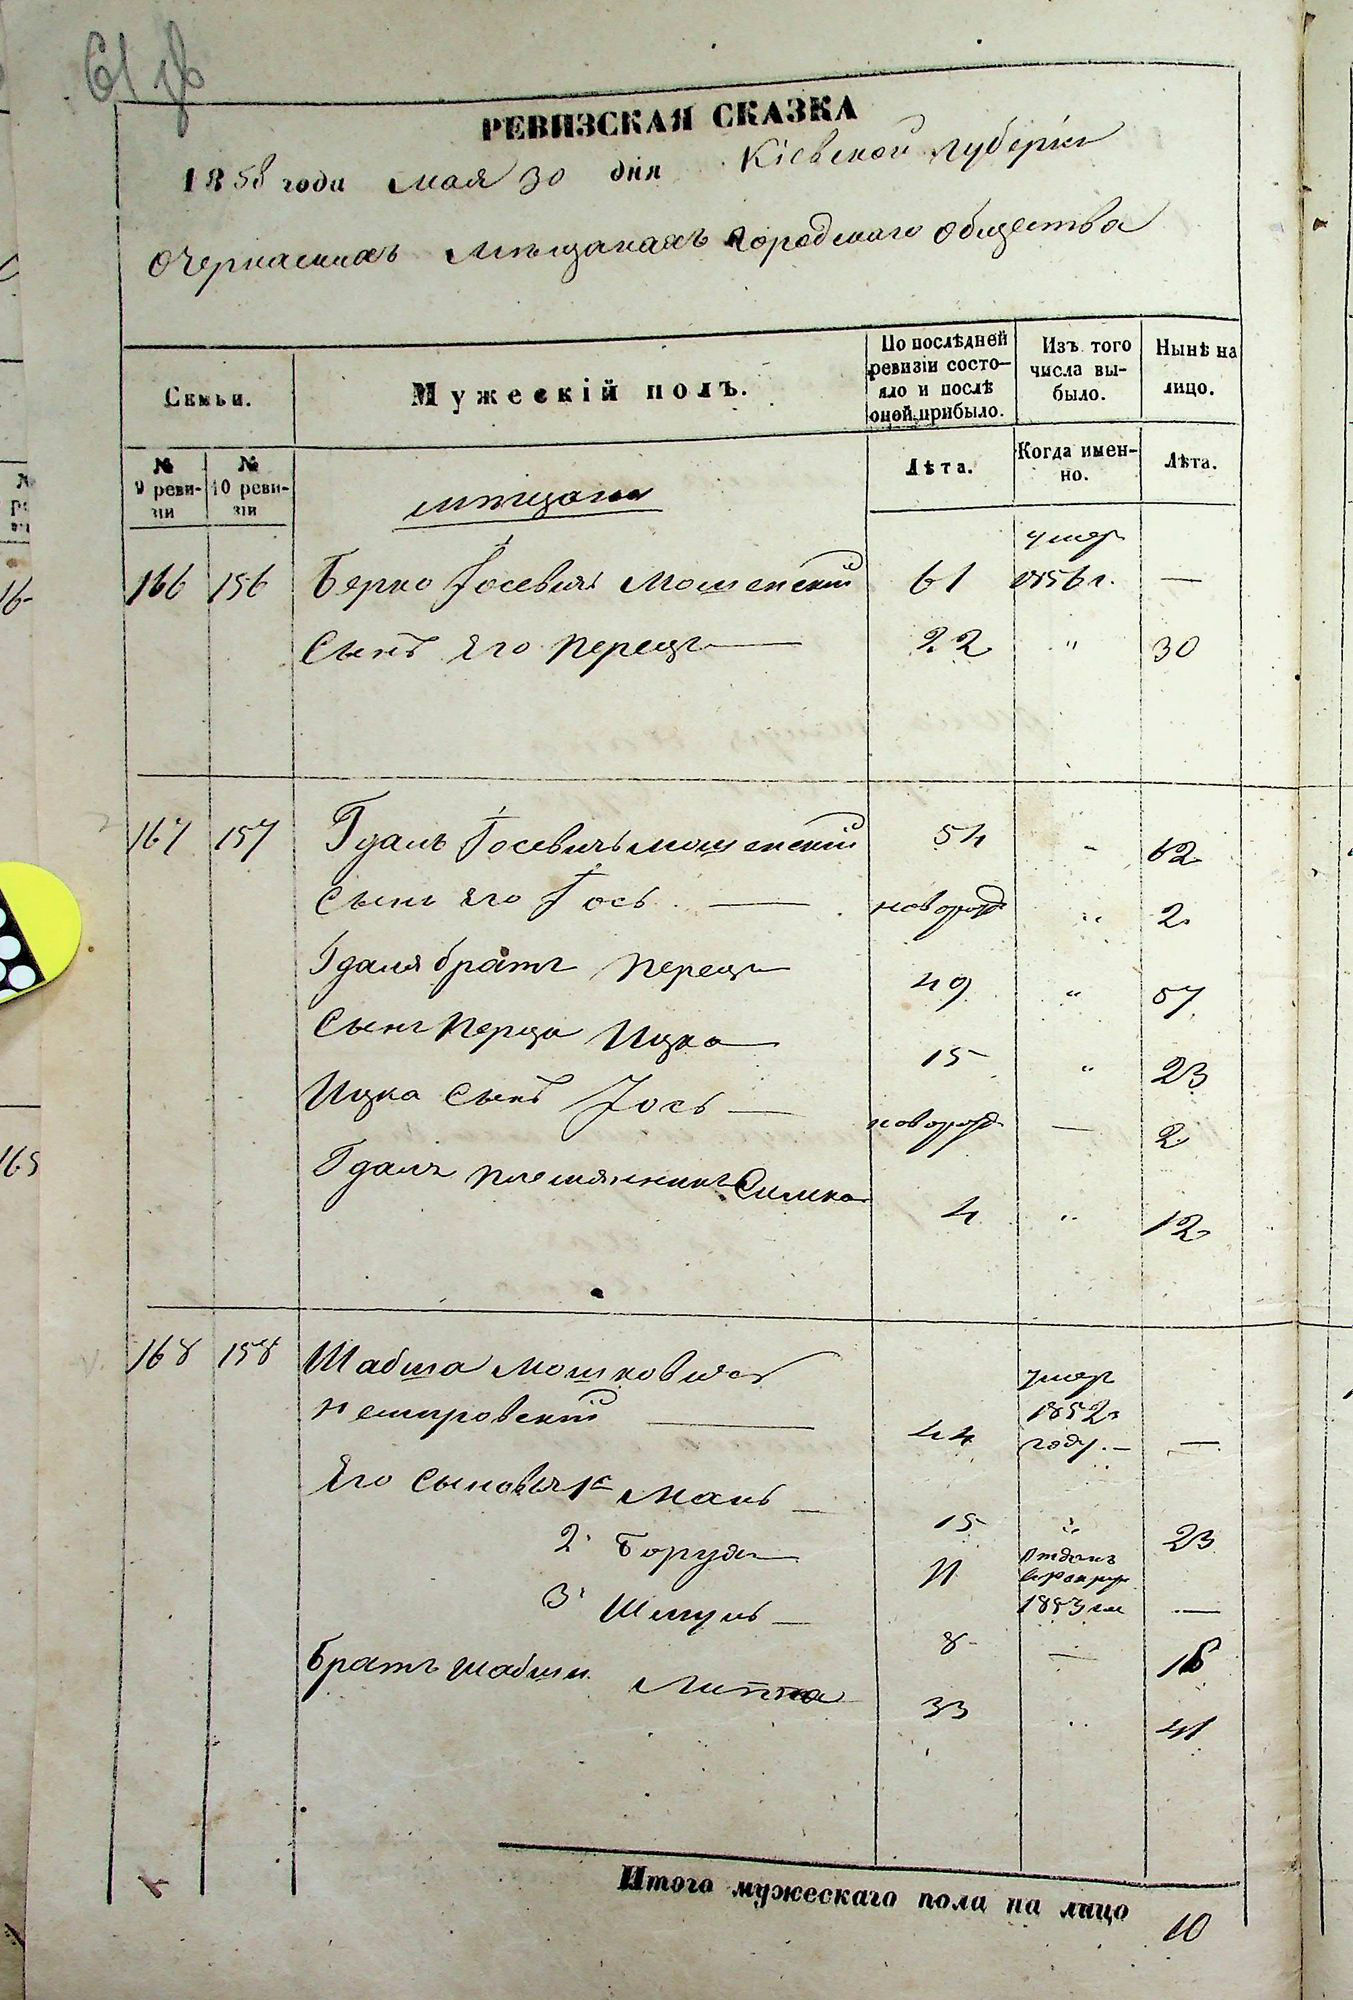 61
РЕВИЗСКАЯ СКАЗКА
1858 года мая 30 дня Кіевской губерніи
о Черкасскихъ мѣщанахъ городскаго общества
Семьи.
Мужескій полъ.
По послѣдней ревизіи состояло и послѣ оной прибыло.
Изъ того числа выбыло.
Нынѣ на лицо.
№ 9 ревизіи
№ 10 ревизіи
Лѣта.
Когда именно.
Лѣта.
мѣщане
умер
166 156 Берко Іосевичъ Мошенскій 61 1856 г. —
Сынъ его Перецъ — 22 " 30
167 157 Гдаль Іосевичъ Мошенскій 54 " 62
Сынъ его Іось — новорожд " 2
Гдаля братъ Перецъ 49 " 57
Сынъ Перца Ицко 15 " 23
Ицка сынъ Іось — новорожд — 2
Гдаля племянникъ Симха 4 " 12
168 158 Шабша Мошковичъ умер
Немировскій — 44 1852 году. — —
Его сыновья 1й Мань — 15 " 23
2. Борух — 11 отданъ в рекруты 1853 г —
3. Шмуль — 8 — 16
Братъ Шабши Липпа 33 " 41
Итого мужескаго пола на лицо 10